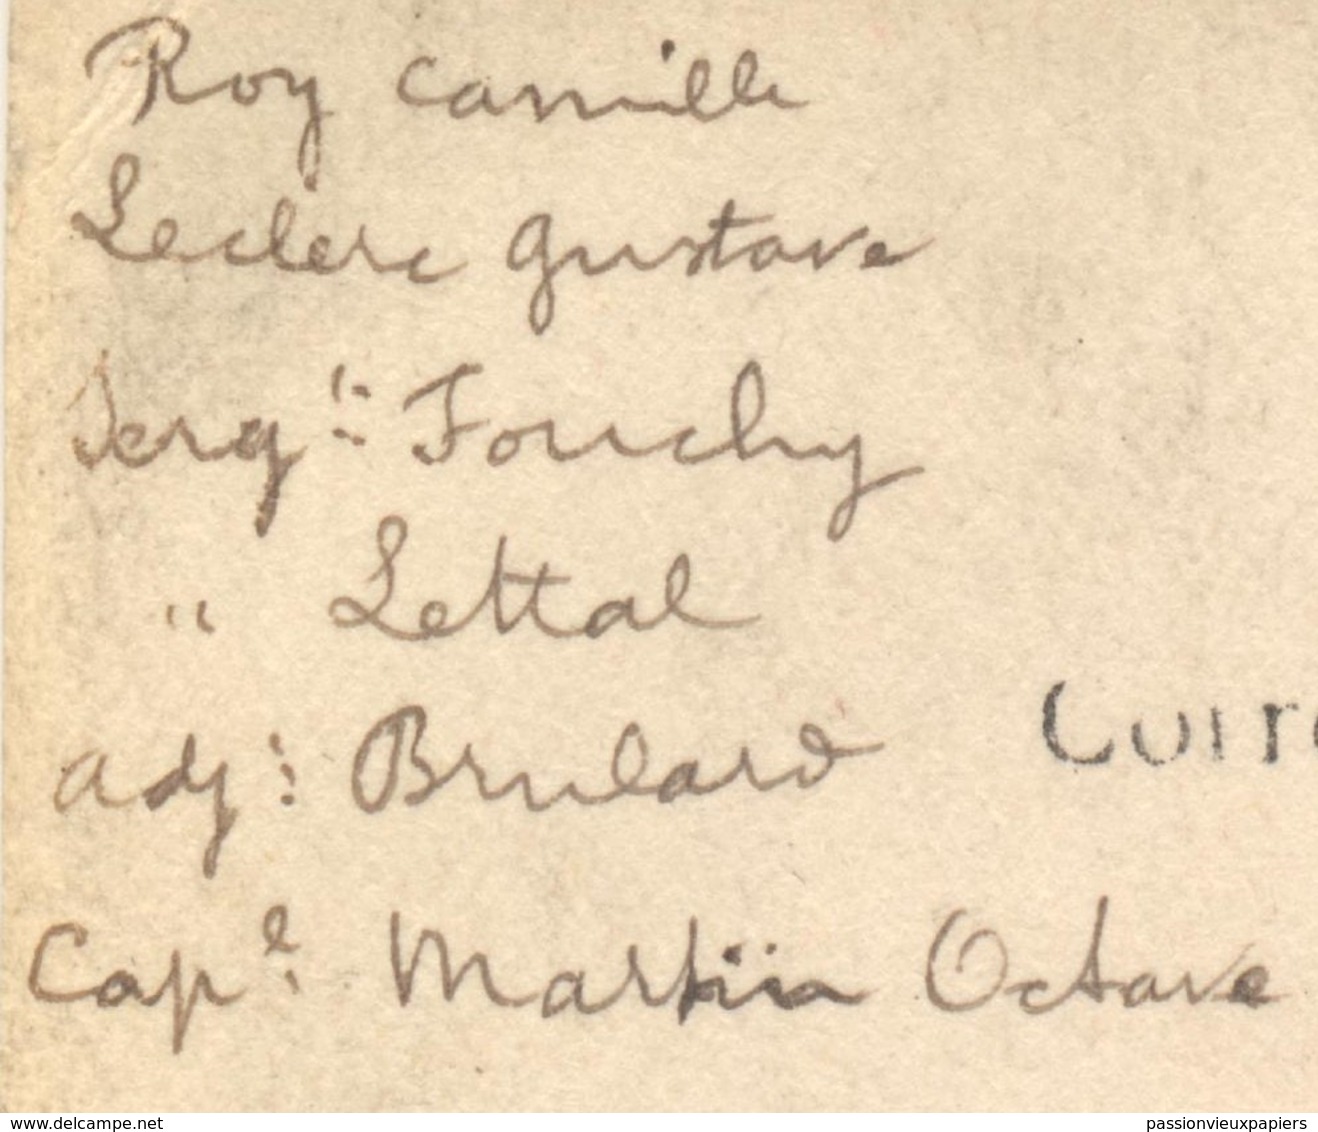 Roy Camille
Leclerc Gustave
Serg^t: Fouchy
" Lettal
adj^t: Brulard
Cap^l. Martin Octave
Corr
www.delcampe.net
passionvieuxpapiers